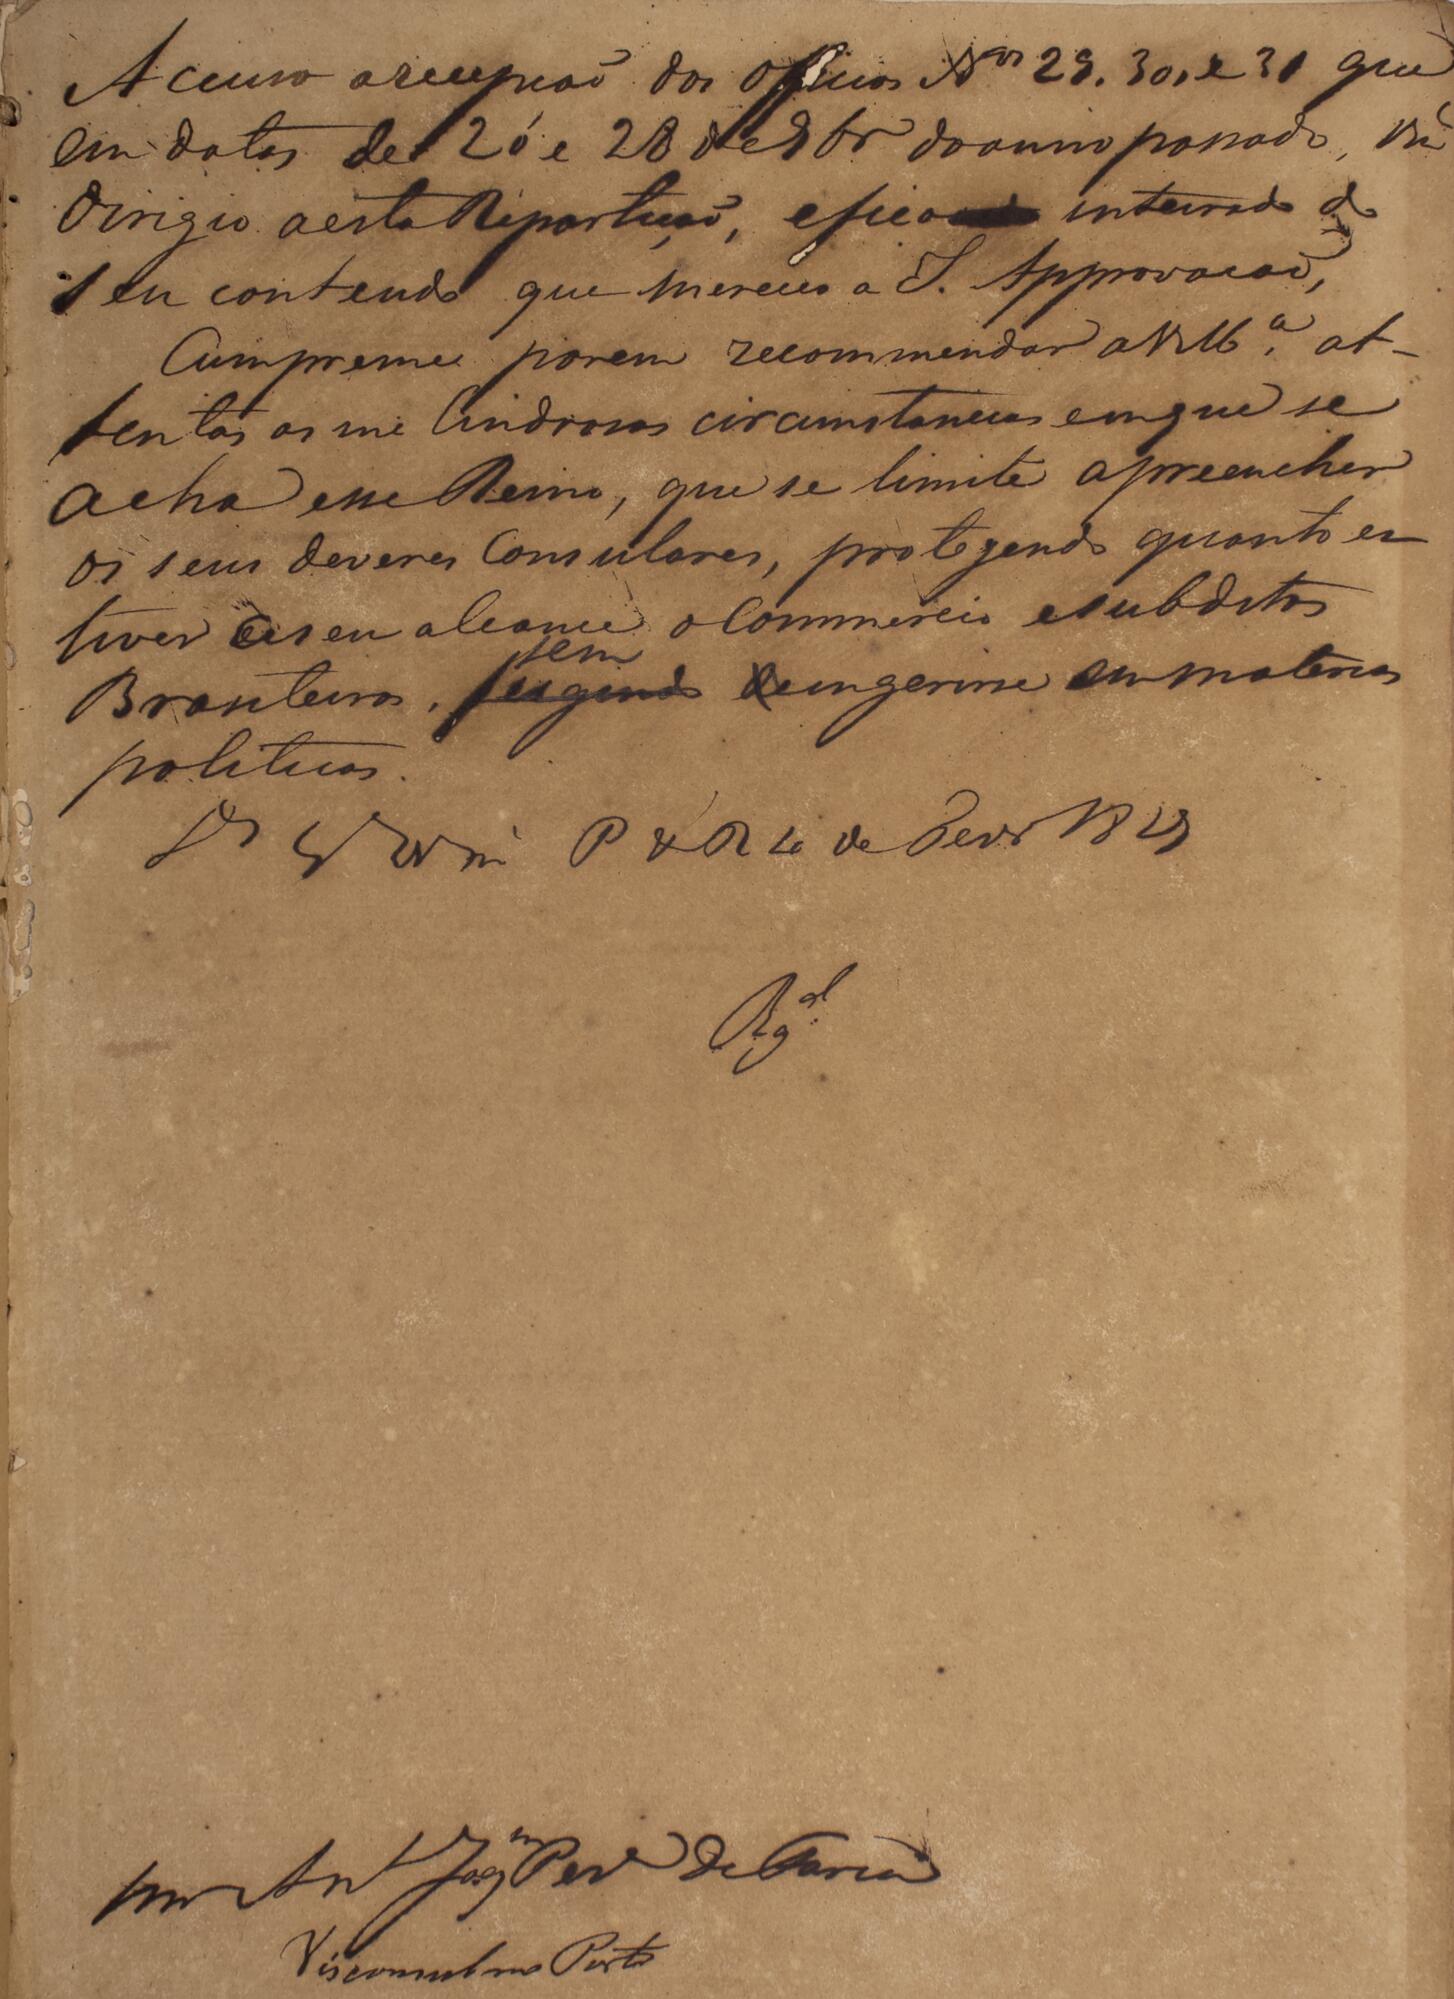 Accuso a recepçaõ dos Officios Nos 29. 30, e 31 que
em datas de 20 e 28 de 9br do anno passado, Vm
dirigio a esta Repartiçaõ, e fico inteirado do
seu contendo que mereceo a I. Approvacaõ,
Cumpreme porem recommendar a VMce. at-
tentas as melindrosas circumstancias em que se
acha esse Reino, que se limite a preencher
os seus deveres Consulares, protegendo quanto es
tiver a seu alcance o Commercio e subditos
Brasileiros, sem ingerirse em materias
politicas.
Ds Gde Vm P de R de Fevr 1829
Snr Anto Joaqm Perª de Faria
Visconsul no Porto